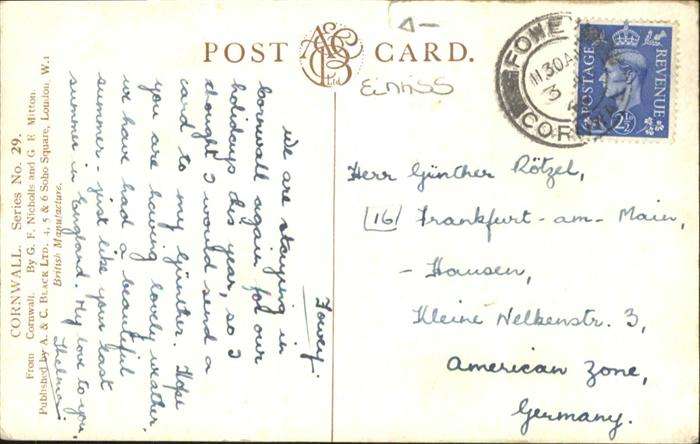 POST CARD.
A & C
B
Ltd.
EinhSS
FOWEY
1130AM
3
CORNWALL
POSTAGE REVENUE
2½D
Fowey.
We are staying in
Cornwall again for our
holidays dis year, so I
dought I would send a
card to my Günther. Hope
you are having lovely weather.
We have had a beautiful
summer. just like your last
summer in England. My love to you,
Thelma.
Herr Günther Rötzel,
[16] Frankfurt-am-Main,
- Hausen,
Kleine Nelkenstr. 3,
American Zone,
Germany.
CORNWALL. Series No. 29.
From Cornwall. By G. F. Nicholls and G. E. Mitton.
Published by A. & C. BLACK LTD. 4, 5 & 6 Soho Square, London, W.1
British Manufacture.